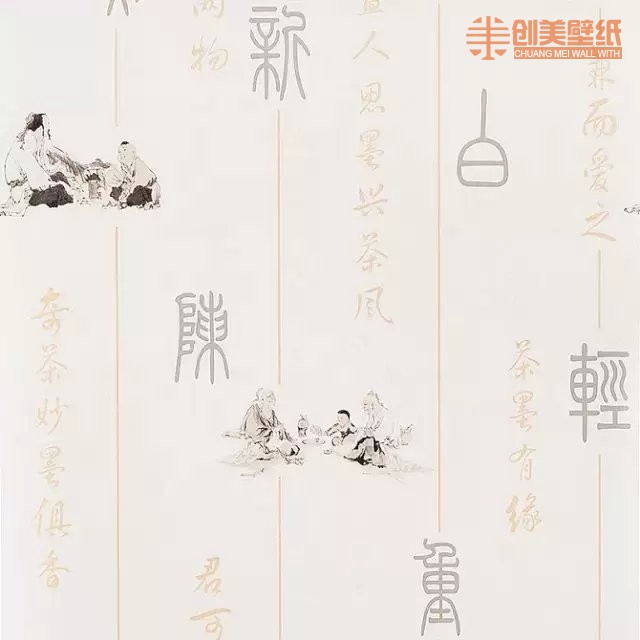 创美壁纸
CHUANG MEI WALL WITH
而愛之
輕
白
茶墨有緣
重
人思墨兴茶风
新
物
陳
君可
奇茶妙墨俱香